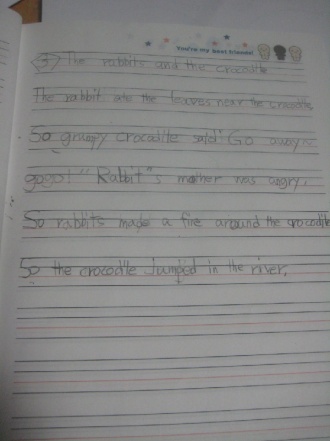 You're my best friends!
3 The rabbits and the crocodile
The rabbit ate the leaves near the crocodile
So grumpy crocodile said" Go away
gogo! " Rabbit"s mother was angry.
So rabbits made a fire around the crocodile
So the crocodile jumped in the river.